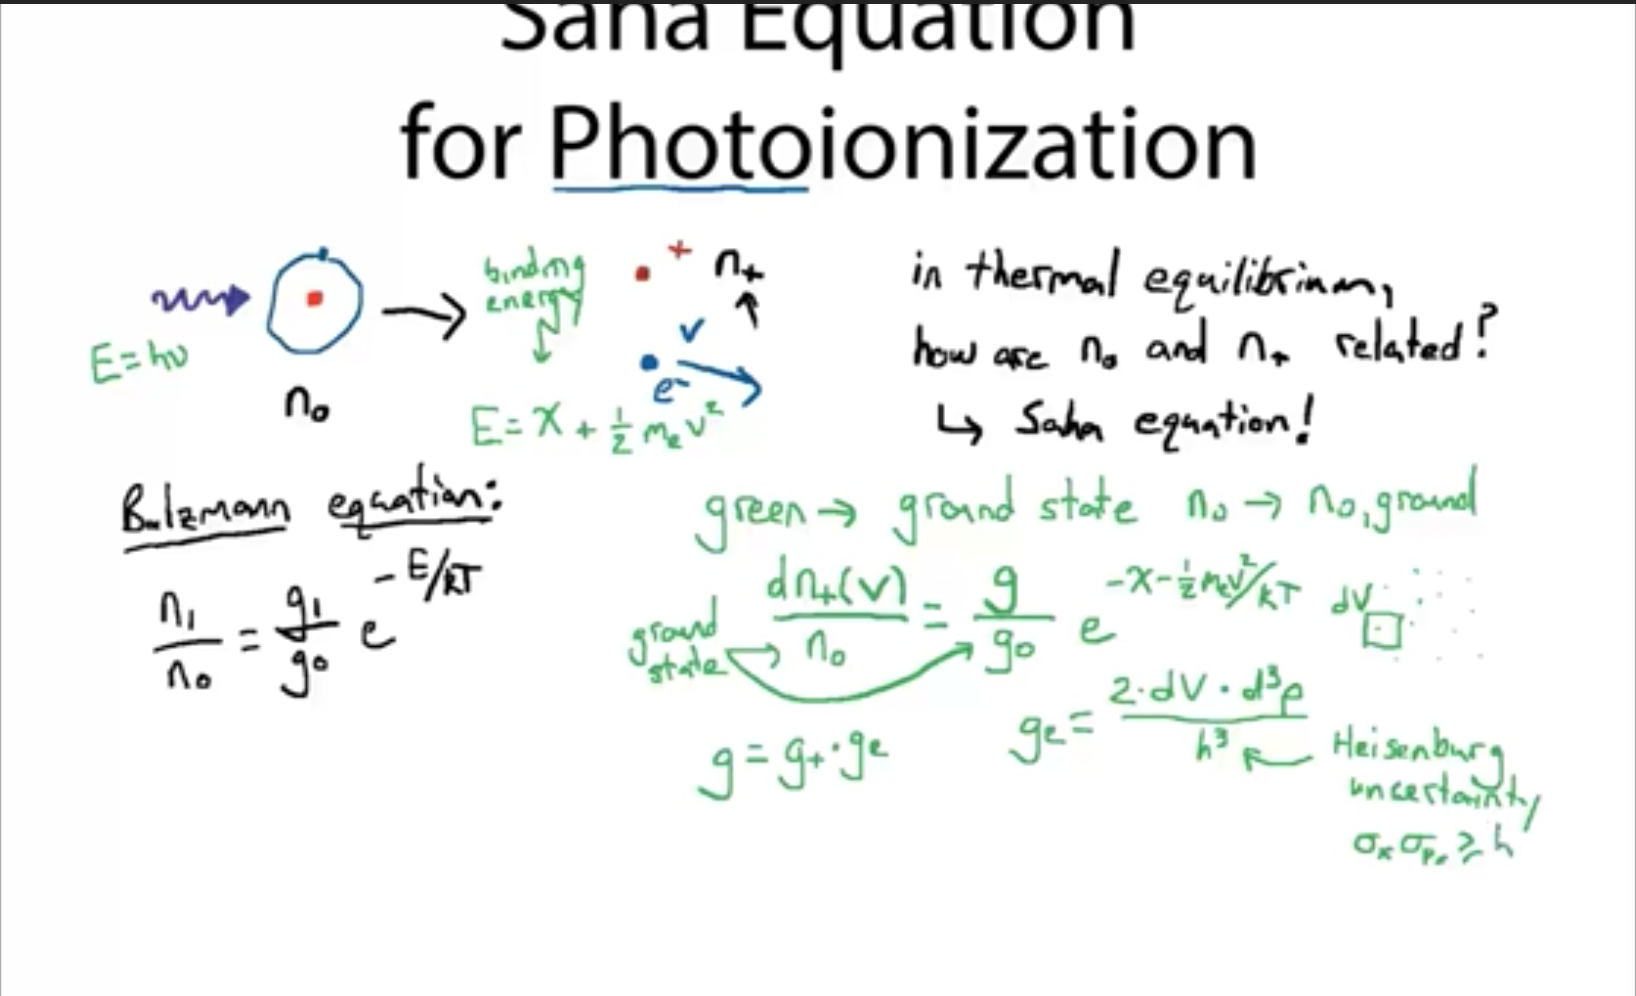 Saha Equation
for Photoionization
E=hν
n₀
binding
energy
E=χ+½mₑv²
+
n₊
v
e⁻
in thermal equilibrium,
how are n₀ and n₊ related?
↳ Saha equation!
Bolzmann equation:
n₁/n₀ = g₁/g₀ e^(-E/kT)
green → ground state n₀ → n₀,ground
ground
state
dn₊(v)/n₀ = g/g₀ e^(-χ-½mₑv²/kT)
dV
g=g₊·gₑ
gₑ= 2·dV·d³p/h³
Heisenburg
uncertainty
σₓσₚₓ≥h